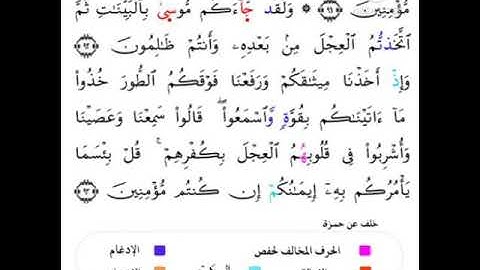 مُّؤْمِنِينَ ۝٩١ ۞ وَلَقَدْ جَآءَكُم مُّوسَىٰ بِٱلْبَيِّنَٰتِ ثُمَّ
ٱتَّخَذتُّمُ ٱلْعِجْلَ مِنۢ بَعْدِهِۦ وَأَنتُمْ ظَٰلِمُونَ ۝٩٢
وَإِذْ أَخَذْنَا مِيثَٰقَكُمْ وَرَفَعْنَا فَوْقَكُمُ ٱلطُّورَ خُذُوا۟
مَآ ءَاتَيْنَٰكُم بِقُوَّةٍ وَٱسْمَعُوا۟ ۖ قَالُوا۟ سَمِعْنَا وَعَصَيْنَا
وَأُشْرِبُوا۟ فِى قُلُوبِهُمُ ٱلْعِجْلَ بِكُفْرِهِمْ ۚ قُلْ بِئْسَمَا
يَأْمُرُكُم بِهِۦٓ إِيمَٰنُكُمْ إِن كُنتُم مُّؤْمِنِينَ ۝٩٣
خلف عن حمزة
الحرف المخالف لحفص الإدغام